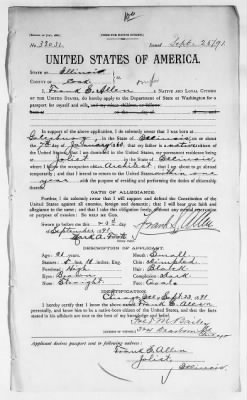 No. 33031. Issued Sept. 25/91
UNITED STATES OF AMERICA.
STATE OF Illinois
COUNTY OF Cook
I, Frank S. Allen, A NATIVE AND LOYAL CITIZEN
OF THE UNITED STATES, do hereby apply to the Department of State at Washington for a
passport for myself and wife,
In support of the above application, I do solemnly swear that I was born at
Galesburg, in the State of Illinois
on the 7th day of January,
that I am domiciled in the United States, my permanent residence being
at Joliet in the State of Illinois
where I follow the occupation of Architect; that I am about to go abroad
temporarily; and that I intend to return to the United States within one
year with the purpose of residing and performing the duties of citizenship
therein.
OATH OF ALLEGIANCE.
Further, I do solemnly swear that I will support and defend the Constitution of the
United States against all enemies, foreign and domestic; that I will bear true faith and
allegiance to the same; and that I take this obligation freely, without any mental reservation
or purpose of evasion: SO HELP ME GOD.
Sworn to before me this 23d day
of September 1891
Frank S. Allen
Mark A. Foote
DESCRIPTION OF APPLICANT.
Age: 31 years.
Mouth: Small
Stature: 5 feet
Chin:
Forehead: High
Hair: Black
Eyes: Brown
Complexion: Dark
Nose: Straight
Face: Oval
IDENTIFICATION.
Chicago, Ills, Sept. 23, 1891
I hereby certify that I know the above named Frank S. Allen
personally, and know him to be a native born citizen of the United States, and that the facts
stated in his affidavit are true to the best of my knowledge and belief.
Fred M.
324 Dearborn St
Chicago
Applicant desires passport sent to following address:
Frank S. Allen
Joliet,
Illinois.